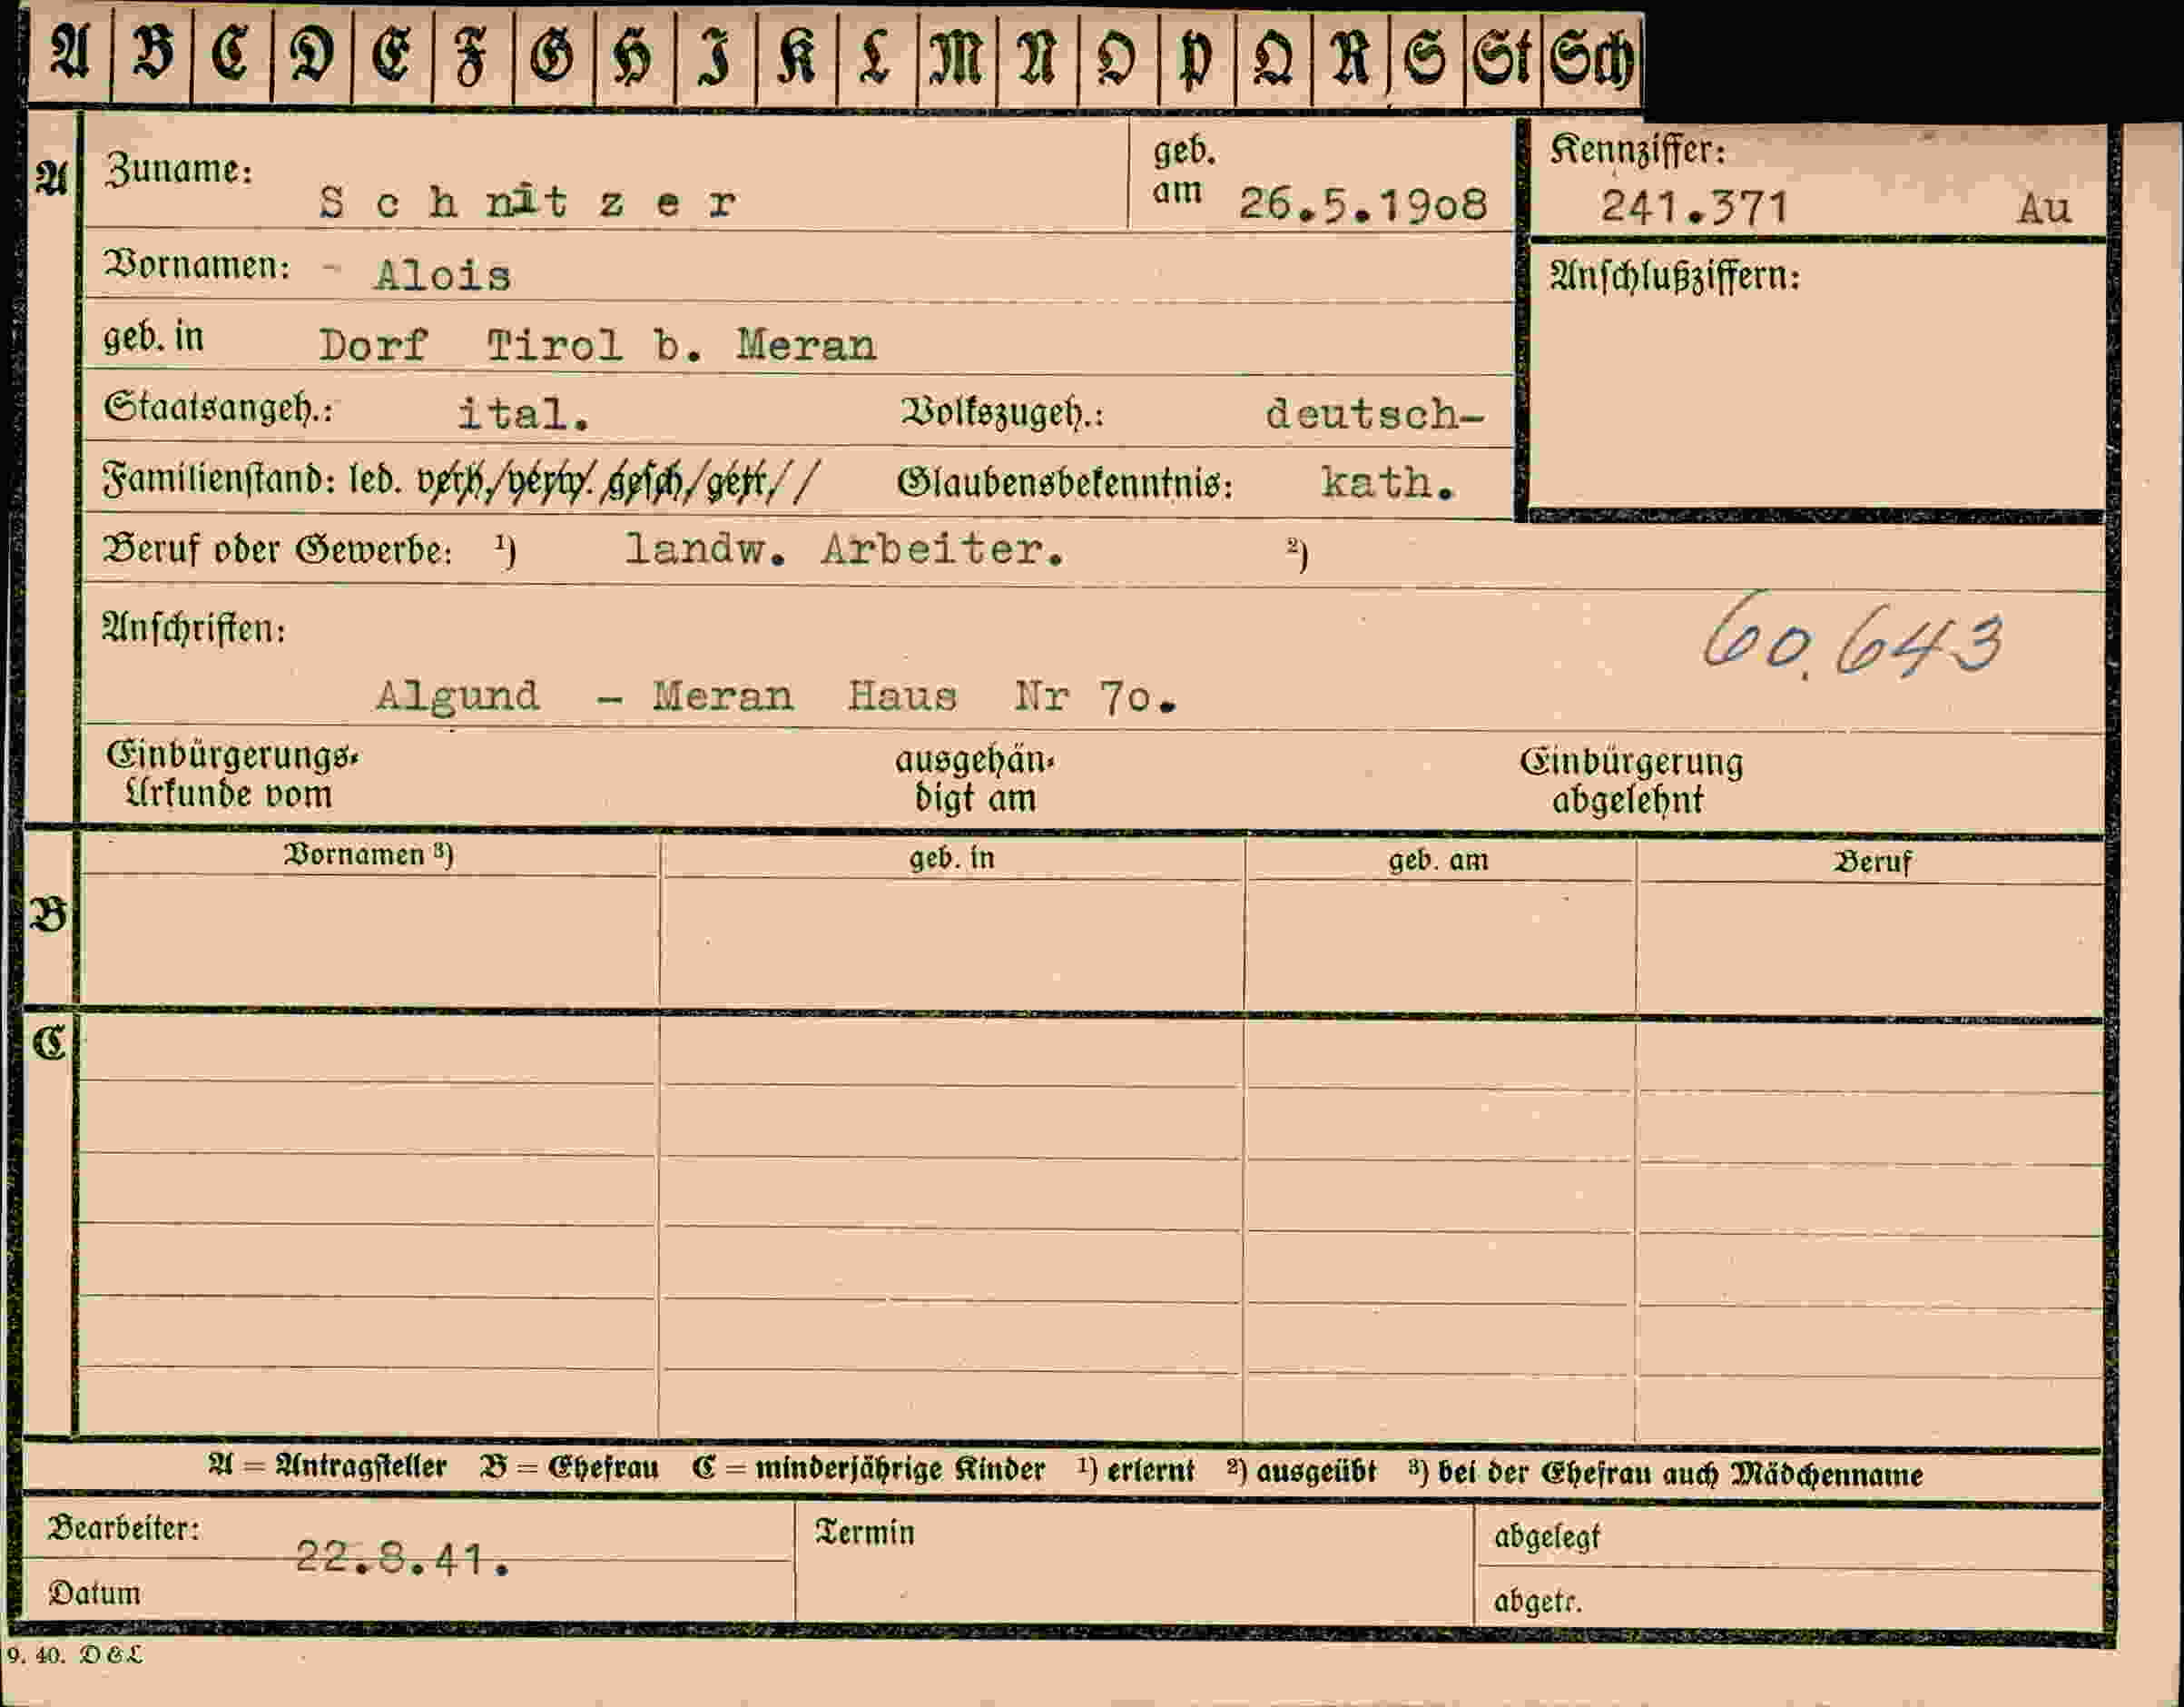 A B C D E F G H I K L M N O P Q R S St Sch
A
Zuname: Schnitzer
geb. am 26.5.19o8
Kennziffer: 241.371 Au
Vornamen: - Alois
Anschlußziffern:
geb. in Dorf Tirol b. Meran
Staatsangeh.: ital. Volkszugeh.: deutsch-
Familienstand: led. verh. verw. gesch. getr. Glaubensbekenntnis: kath.
Beruf oder Gewerbe: ¹) landw. Arbeiter. ²)
Anschriften: 60.643
Algund - Meran Haus Nr 7o.
Einbürgerungs-Urkunde vom
ausgehändigt am
Einbürgerung abgelehnt
B
Vornamen ³) geb. in geb. am Beruf
C
A = Antragsteller B = Ehefrau C = minderjährige Kinder ¹) erlernt ²) ausgeübt ³) bei der Ehefrau auch Mädchenname
Bearbeiter: Termin abgelegt
22.8.41.
Datum abgetr.
9. 40. D&L